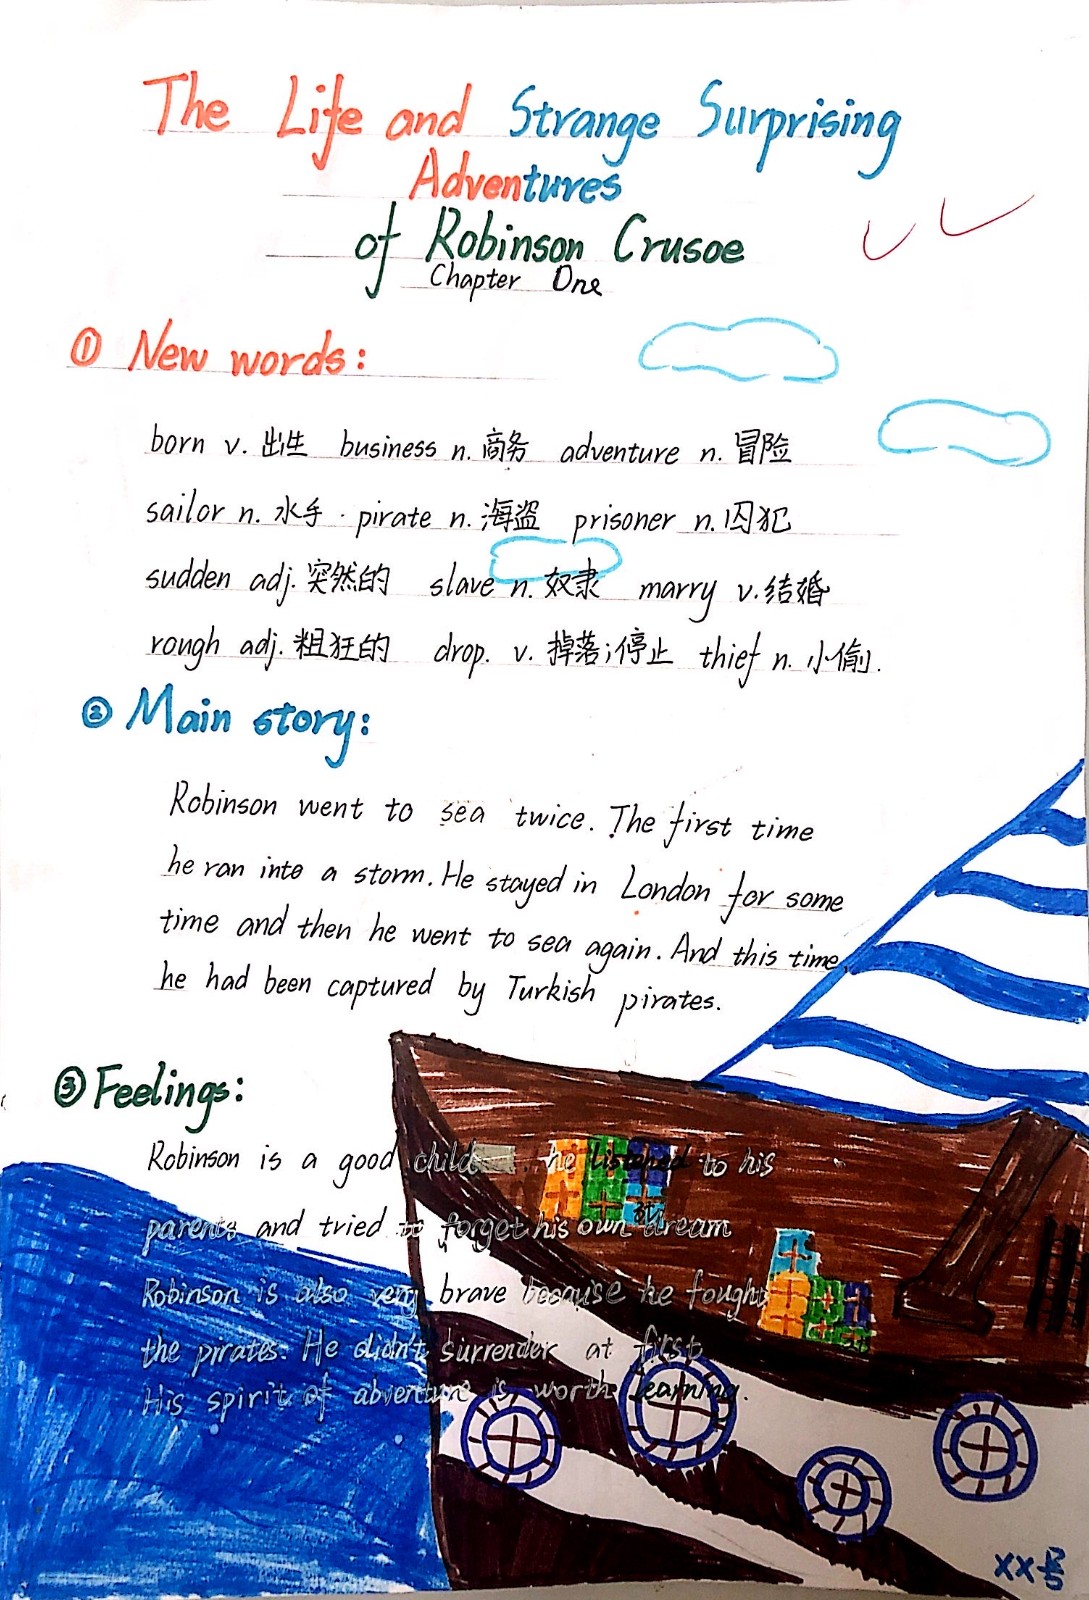 The Life and Strange Surprising
Adventures
of Robinson Crusoe
Chapter One
① New words:
born v. 出生 business n. 商务 adventure n. 冒险
sailor n. 水手 · pirate n. 海盗 prisoner n. 囚犯
sudden adj. 突然的 slave n. 奴隶 marry v. 结婚
rough adj. 粗狂的 drop. v. 掉落;停止 thief n. 小偷.
② Main story:
Robinson went to sea twice. The first time
he ran into a storm. He stayed in London for some
time and then he went to sea again. And this time,
he had been captured by Turkish pirates.
③ Feelings:
Robinson is a good child . he listened to his
parents and tried to forget his own dream
Robinson is also very brave because he fought
the pirates. He didn't surrender at first.
His spirit of abventure is worth learning.
XX号